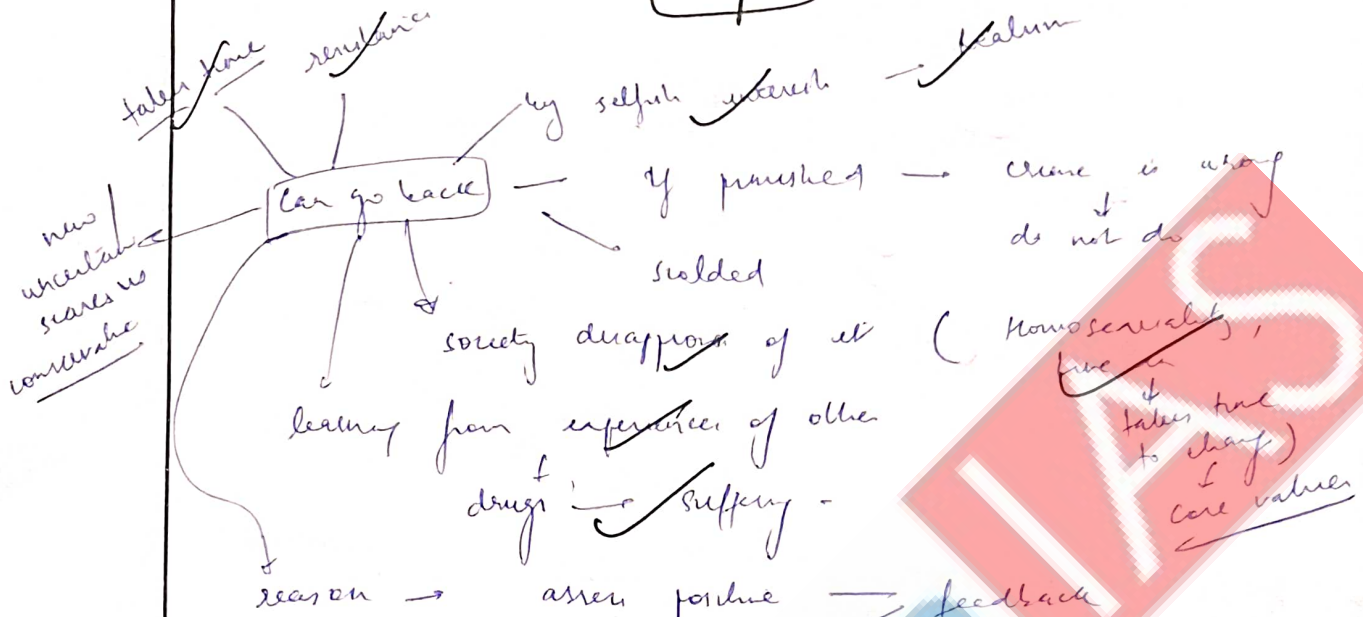 takes time
resistance
by selfish interests →
can go back
If punished → crime is wrong
↓
do not do
scolded
new
uncertain
scares us
conservative
society disapproves of it ( Homosexuality,
live in
↓
takes time
to change)
↓
core values
learning from experiences of other
↓
drugs → suffering -
reason → assess positive → feedback
IAS